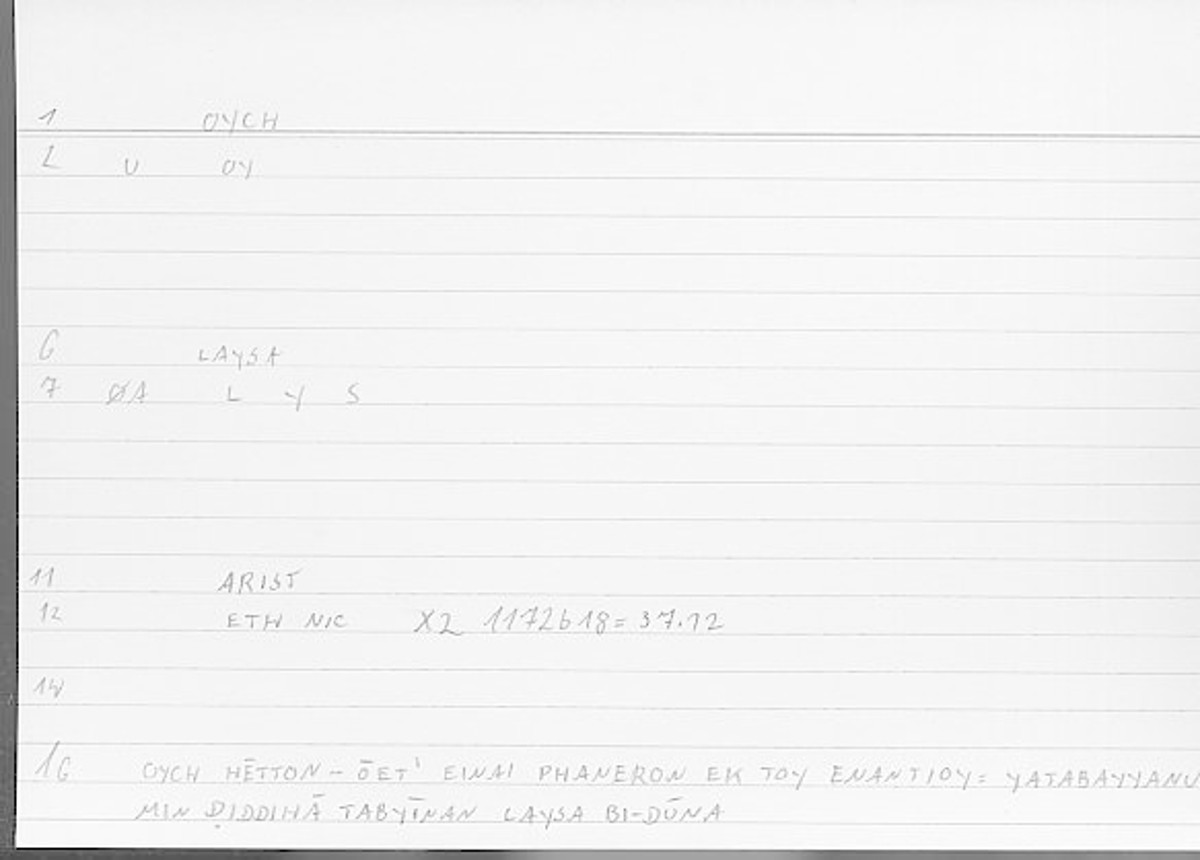 1 OYCH
2 U OY
6 LAYSA
7 ØA L Y S
11 ARIST
12 ETH NIC X2 1172b18= 37.12
14
16 OYCH HĒTTON – ŌET' EINAI PHANERON EK TOY ENANTIOY= YATABAYYANU
MIN ḌIDDIHĀ TABYĪNAN LAYSA BI-DŪNA